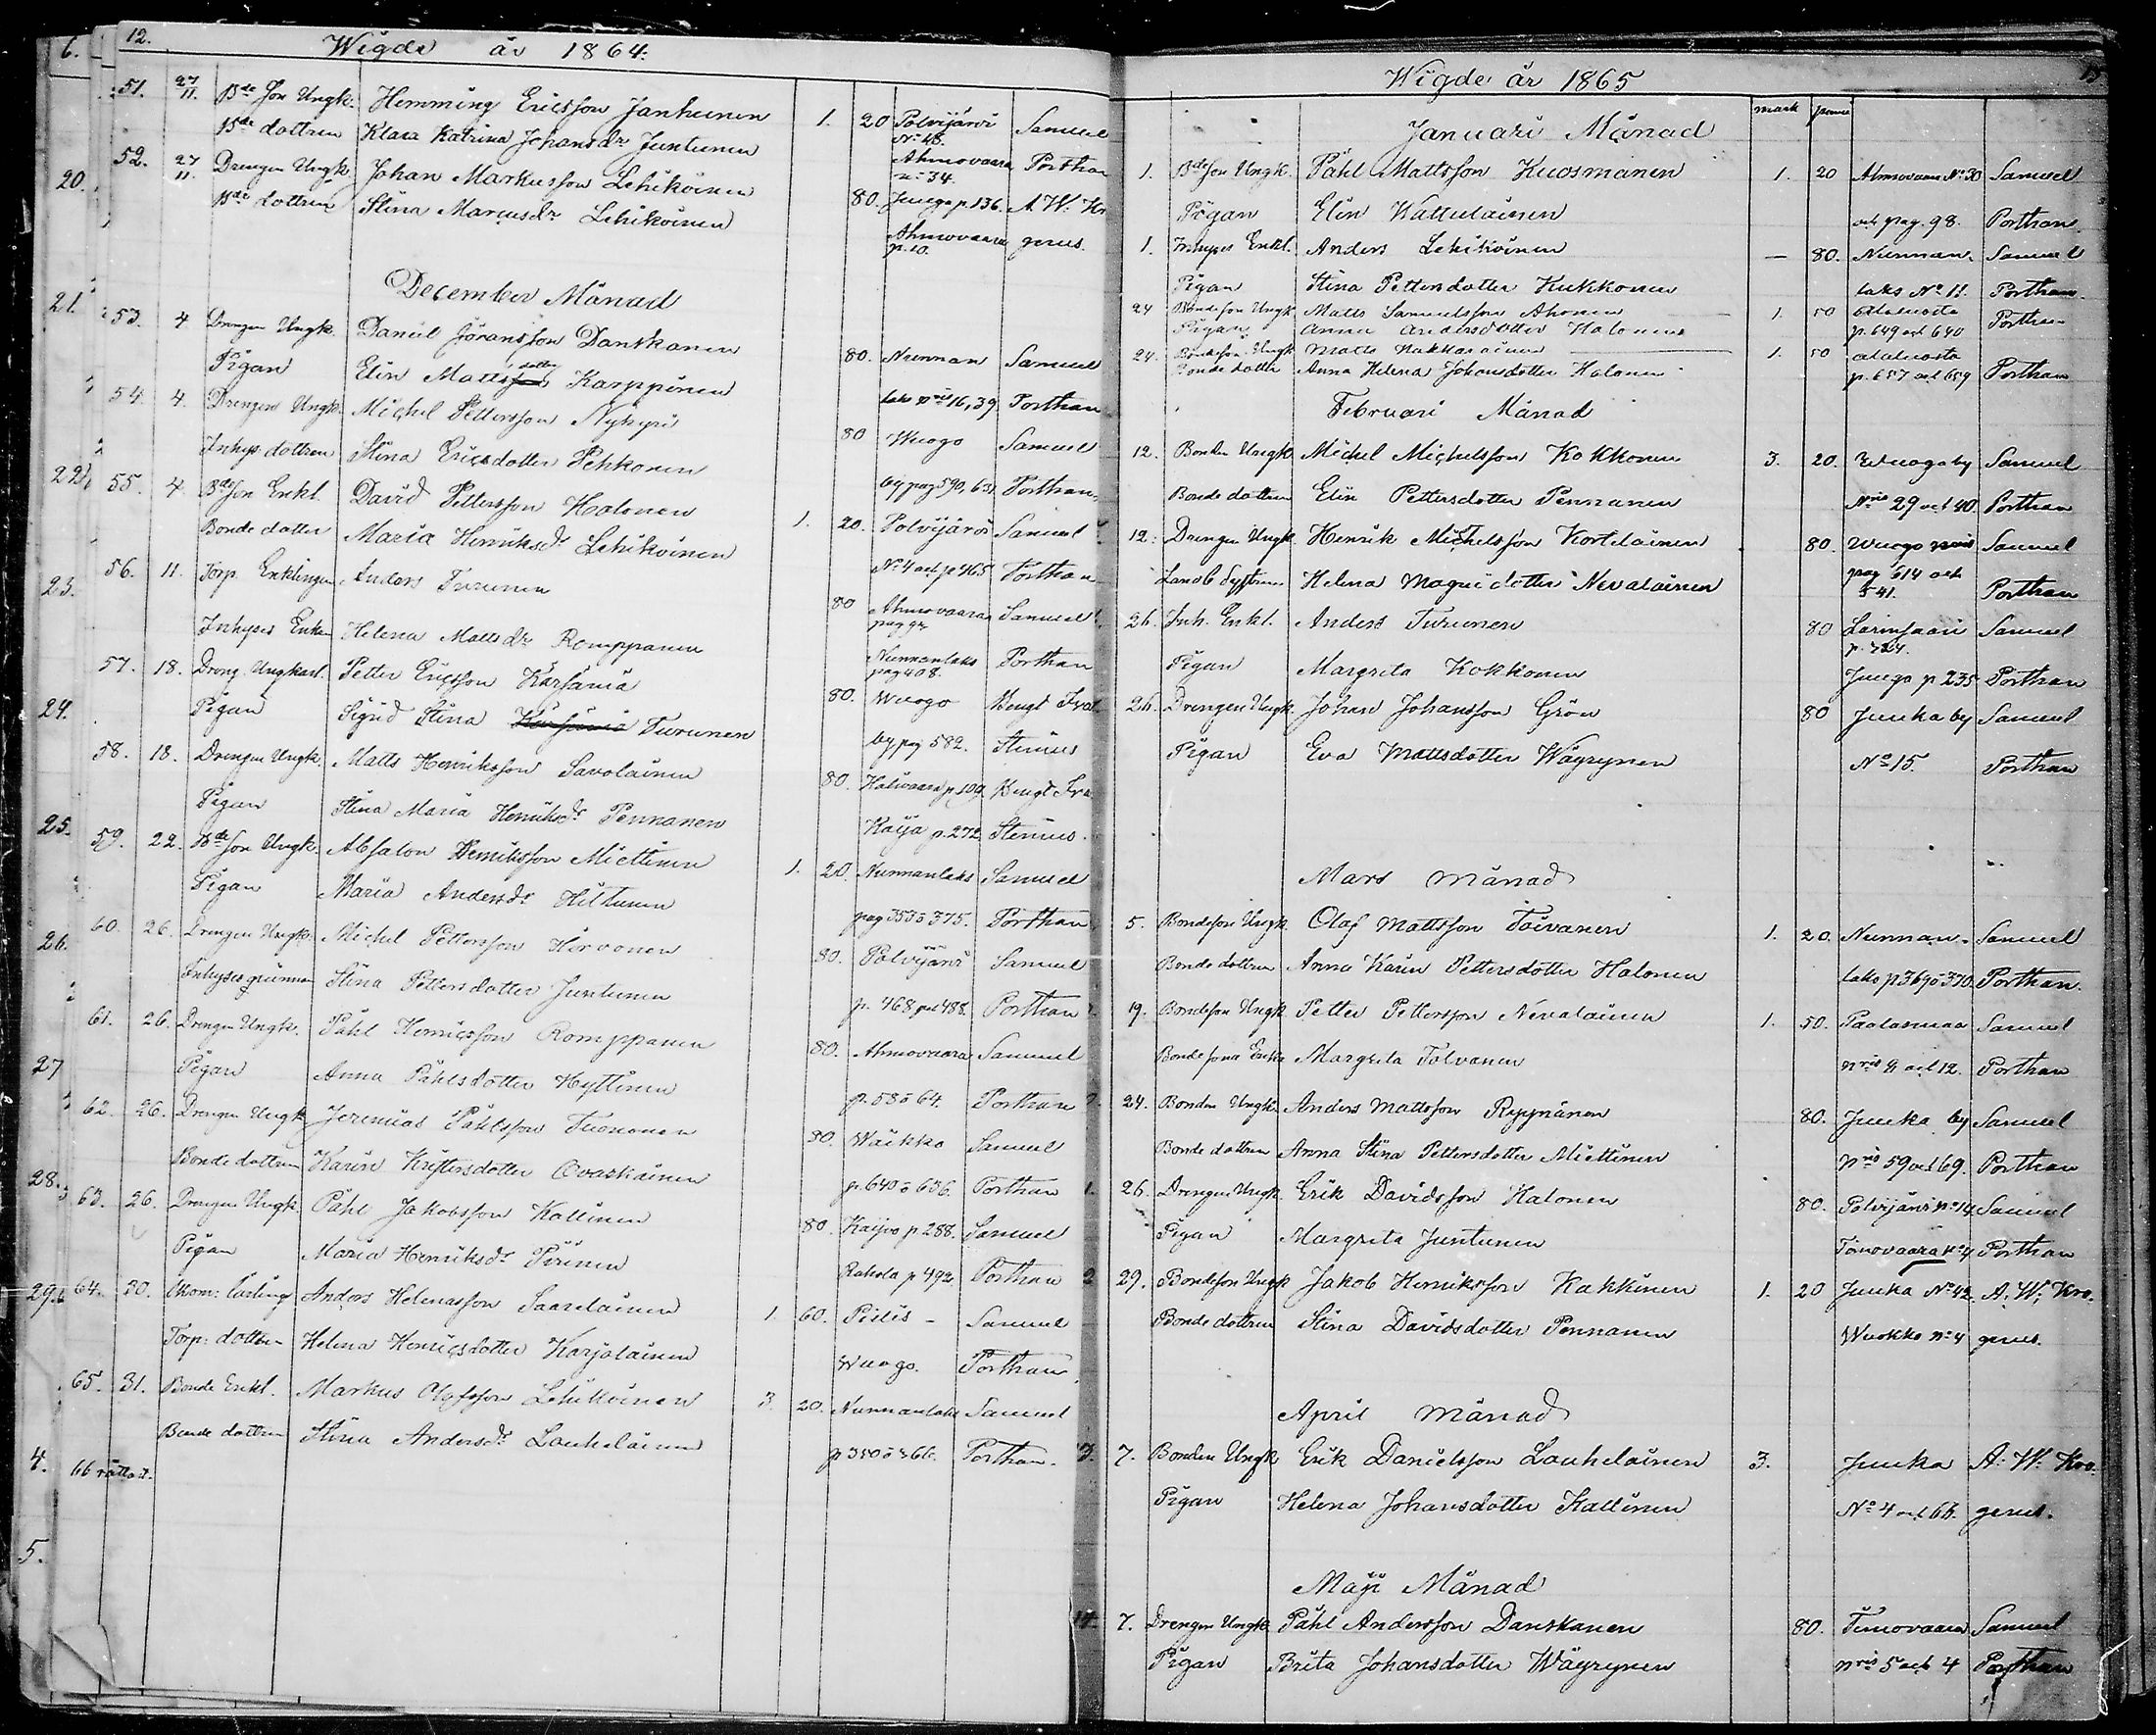 12.
Wigde år 1864.
51. 27/11. Bde Son Ungk. Hemming Ericsson Janhunen 1. 20 Polvijärvi Samuel
Bde dottren Klara Katrina Johansdr Juntunen No 48. Porthan
52. 27/11. Drengen Ungk. Johan Markusson Lehikoinen 80. Ahmovaara no 34.
Bde dottren Stina Marcusdr Lehikoinen Juuga p 136. A. W. Kr
Ahmovaara p. 10. gerus.
December Månad
53. 4 Drengen Ungk. Daniel Göransson Danskanen 80. Nunnan Samuel
Pigan Elin Matts dotter Karppinen laks nris 16, 39 Porthan
54. 4. Drengen Ungk. Michel Pettersson Nykyri 80 Wuogo Samuel
Inhys dottren Stina Ericsdotter Pehkonen by pag 590, 631 Porthan
55. 4. Bde son Enkl. David Pettersson Halonen 1. 20. Polvijärvi Samuel
Bonde dotter Maria Henriksdr Lehikoinen No 4 och p 465 Porthan
56. 11. Torp. Enklingen Anders Turunen 80 Ahmovaara Samuel
Inhyses Enkan Helena Mattsdr Romppanen Nunnanlaks pag 408. Porthan
57. 18. Dreng. Ungkarl. Petter Ericsson Kärsämä 80. Wuogo Bengt Fred.
Pigan Sigrid Stina Turunen by pag 582. Stenius
58. 18. Drengen Ungk. Matts Henriksson Savolainen 80. Kalivaara p. 109. Bengt Fre
Pigan Stina Maria Henriksdr Pennanen Kaija p. 272 Stenius.
59. 22. Bde son Ungk. Absalon Henriksson Miettinen 1. 20. Nunnanlaks Samuel
Pigan Maria Andersdr Hiltunen pag 353 o 375. Porthan
60. 26. Drengen Ungk. Michel Pettersson Hirvonen 80. Polvijärvi Samuel
Inhyses qvinnan Stina Pettersdotter Juntunen p. 468 och 488. Porthan
61. 26. Drengen Ungk. Påhl Henricsson Romppanen 80. Ahmovaara Samuel
Pigan Anna Påhlsdotter Hyttinen p. 58 o 64. Porthan
62. 26. Drengen Ungk. Jeremias Påhlsson Tuononen 80. Waikko Samuel
Bonde dottren Karin Kristersdotter Ovaskainen p. 640 o 636. Porthan
63. 26. Drengen Ungk. Påhl Jakobsson Kallinen 80. Kaijvo p 288. Samuel
Pigan Maria Henriksdr Piirinen Rahola p 492 Porthan
64. 30. Anders Helenasson Saarelainen 1. 60. Pielis- Samuel
Torp: dottren Helena Henricsdotter Karjalainen Wuogo. Porthan
65. 31. Bonde Enkl. Markus Olofsson Lehikoinen 3. 20. Nunnanlaks Samuel
Bonde dottren Stina Andersdr Lauhelainen p 350 o 366. Porthan.
66 rättast.
Wigde år 1865
mark penni
Januari Månad
1. Bde son Ungk. Påhl Mattsson Kuosmanen 1. 20 Ahmovaara No 30 Samuel
Pigan Elin Wattulainen och pag. 98. Porthan
1. Inhyses Enkl. Anders Lehikoinen — 80. Nunnan- Samuel
Pigan Stina Pettersdotter Kukkonen laks No 11. Porthan.
24 Bondeson Ungk. Matts Samuelsson Ahonen 1. 50
Pigan Anna Andersdotter Halonen p. 649 och 640 Porthan
24. Bondeson Ungk. Matts Hakkarainen 1. 50
Bonde dotter Anna Helena Johansdotter Halonen p. 657 och 659 Porthan
Februari Månad
12. Bonden Ungk. Michel Michelsson Kokkonen 3. 20. Samuel
Bonde dottren Elin Pettersdotter Pennanen Nris 29 och 40. Porthan
12. Drengen Ungk. Henrik Michelsson Kortelainen 80. Wuogo Samuel
Helena Magnidotter Nevalainen pag 614 och 541. Porthan
26. Inh. Enkl. Anders Turunen 80 Larinsaari p. 324. Samuel
Pigan Margreta Kokkonen Juuga p 235 Porthan
26. Drengen Ungk. Johan Johansson Grön 80 Juuka by Samuel
Pigan Eva Mattsdotter Wäyrynen No 15. Porthan
Mars Månad
5. Bondeson Ungk. Olof Mattsson Toivanen 1. 20. Nunnan- Samuel
Bonde dottren Anna Karin Pettersdotter Halonen laks p 369 o 370. Porthan.
19. Bondeson Ungk. Petter Pettersson Nevalainen 1. 50. Paalasmaa Samuel
Bondesons Enka Margreta Tolvanen nris 9 och 12. Porthan
24. Bonden Ungk. Anders Mattsson Ryynänen 80. Juuka by Samuel
Bonde dottren Anna Stina Pettersdotter Miettinen nris 59 och 69. Porthan
26. Drengen Ungk. Erik Davidsson Halonen 80. Polvijärvi no 14 Samuel
Pigan Margreta Juntunen Timovaara No 4 Porthan
29. Bondeson Ungk. Jakob Henriksson Kakkinen 1. 20 Juuka No 42. A. W. Kro-
Bonde dottren Stina Davidsdotter Pennanen Wuokko no 4 gerus.
April Månad
7. Bonden Ungk. Erik Danielsson Lauhelainen 3. Juuka A. W. Kro-
Pigan Helena Johansdotter Kallinen No 4 och 66. gerus.
Maji Månad
7. Drengen Ungk. Påhl Andersson Danskanen 80. Timovaara Samuel
Pigan Brita Johansdotter Wäyrynen nris 5 och 4 Porthan